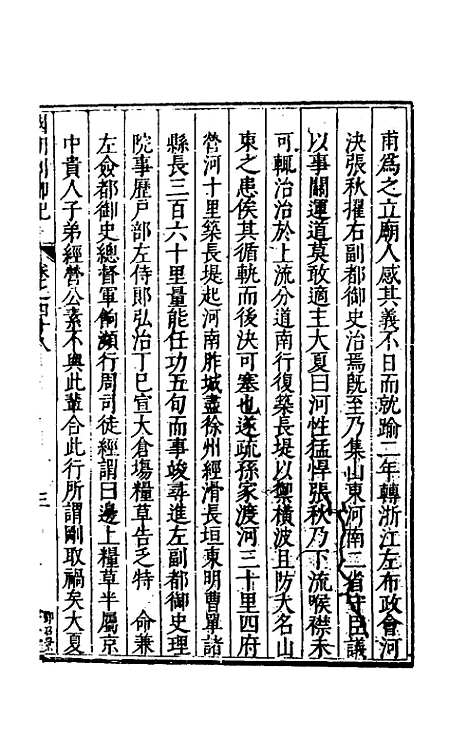 甫爲之立廟人感其義不日而就踰二年轉浙江左布政會河
決張秋擢右副都御史治焉旣至乃集山東河南二省守臣議
以事關運道莫敢適主大夏曰河性猛悍張秋乃下流喉襟未
可輒治治於上流分道南行復築長堤以禦橫波且防大名山
東之患俟其循軌而後決可塞也遂疏孫家渡河三十里四府
營河十里築長堤起河南胙城盡徐州經滑長垣東明曹單諸
縣長三百六十里量能任功五旬而事竣尋進左副都御史理
院事歷戶部左侍郎弘治丁巳宣大倉塲糧草告乏特 命兼
左僉都御史總督軍餉瀕行周司徒經謂曰邊上糧草半屬京
中貴人子弟經營公素不與此輩合此行所謂剛取禍矣大夏
卷之四十八
三